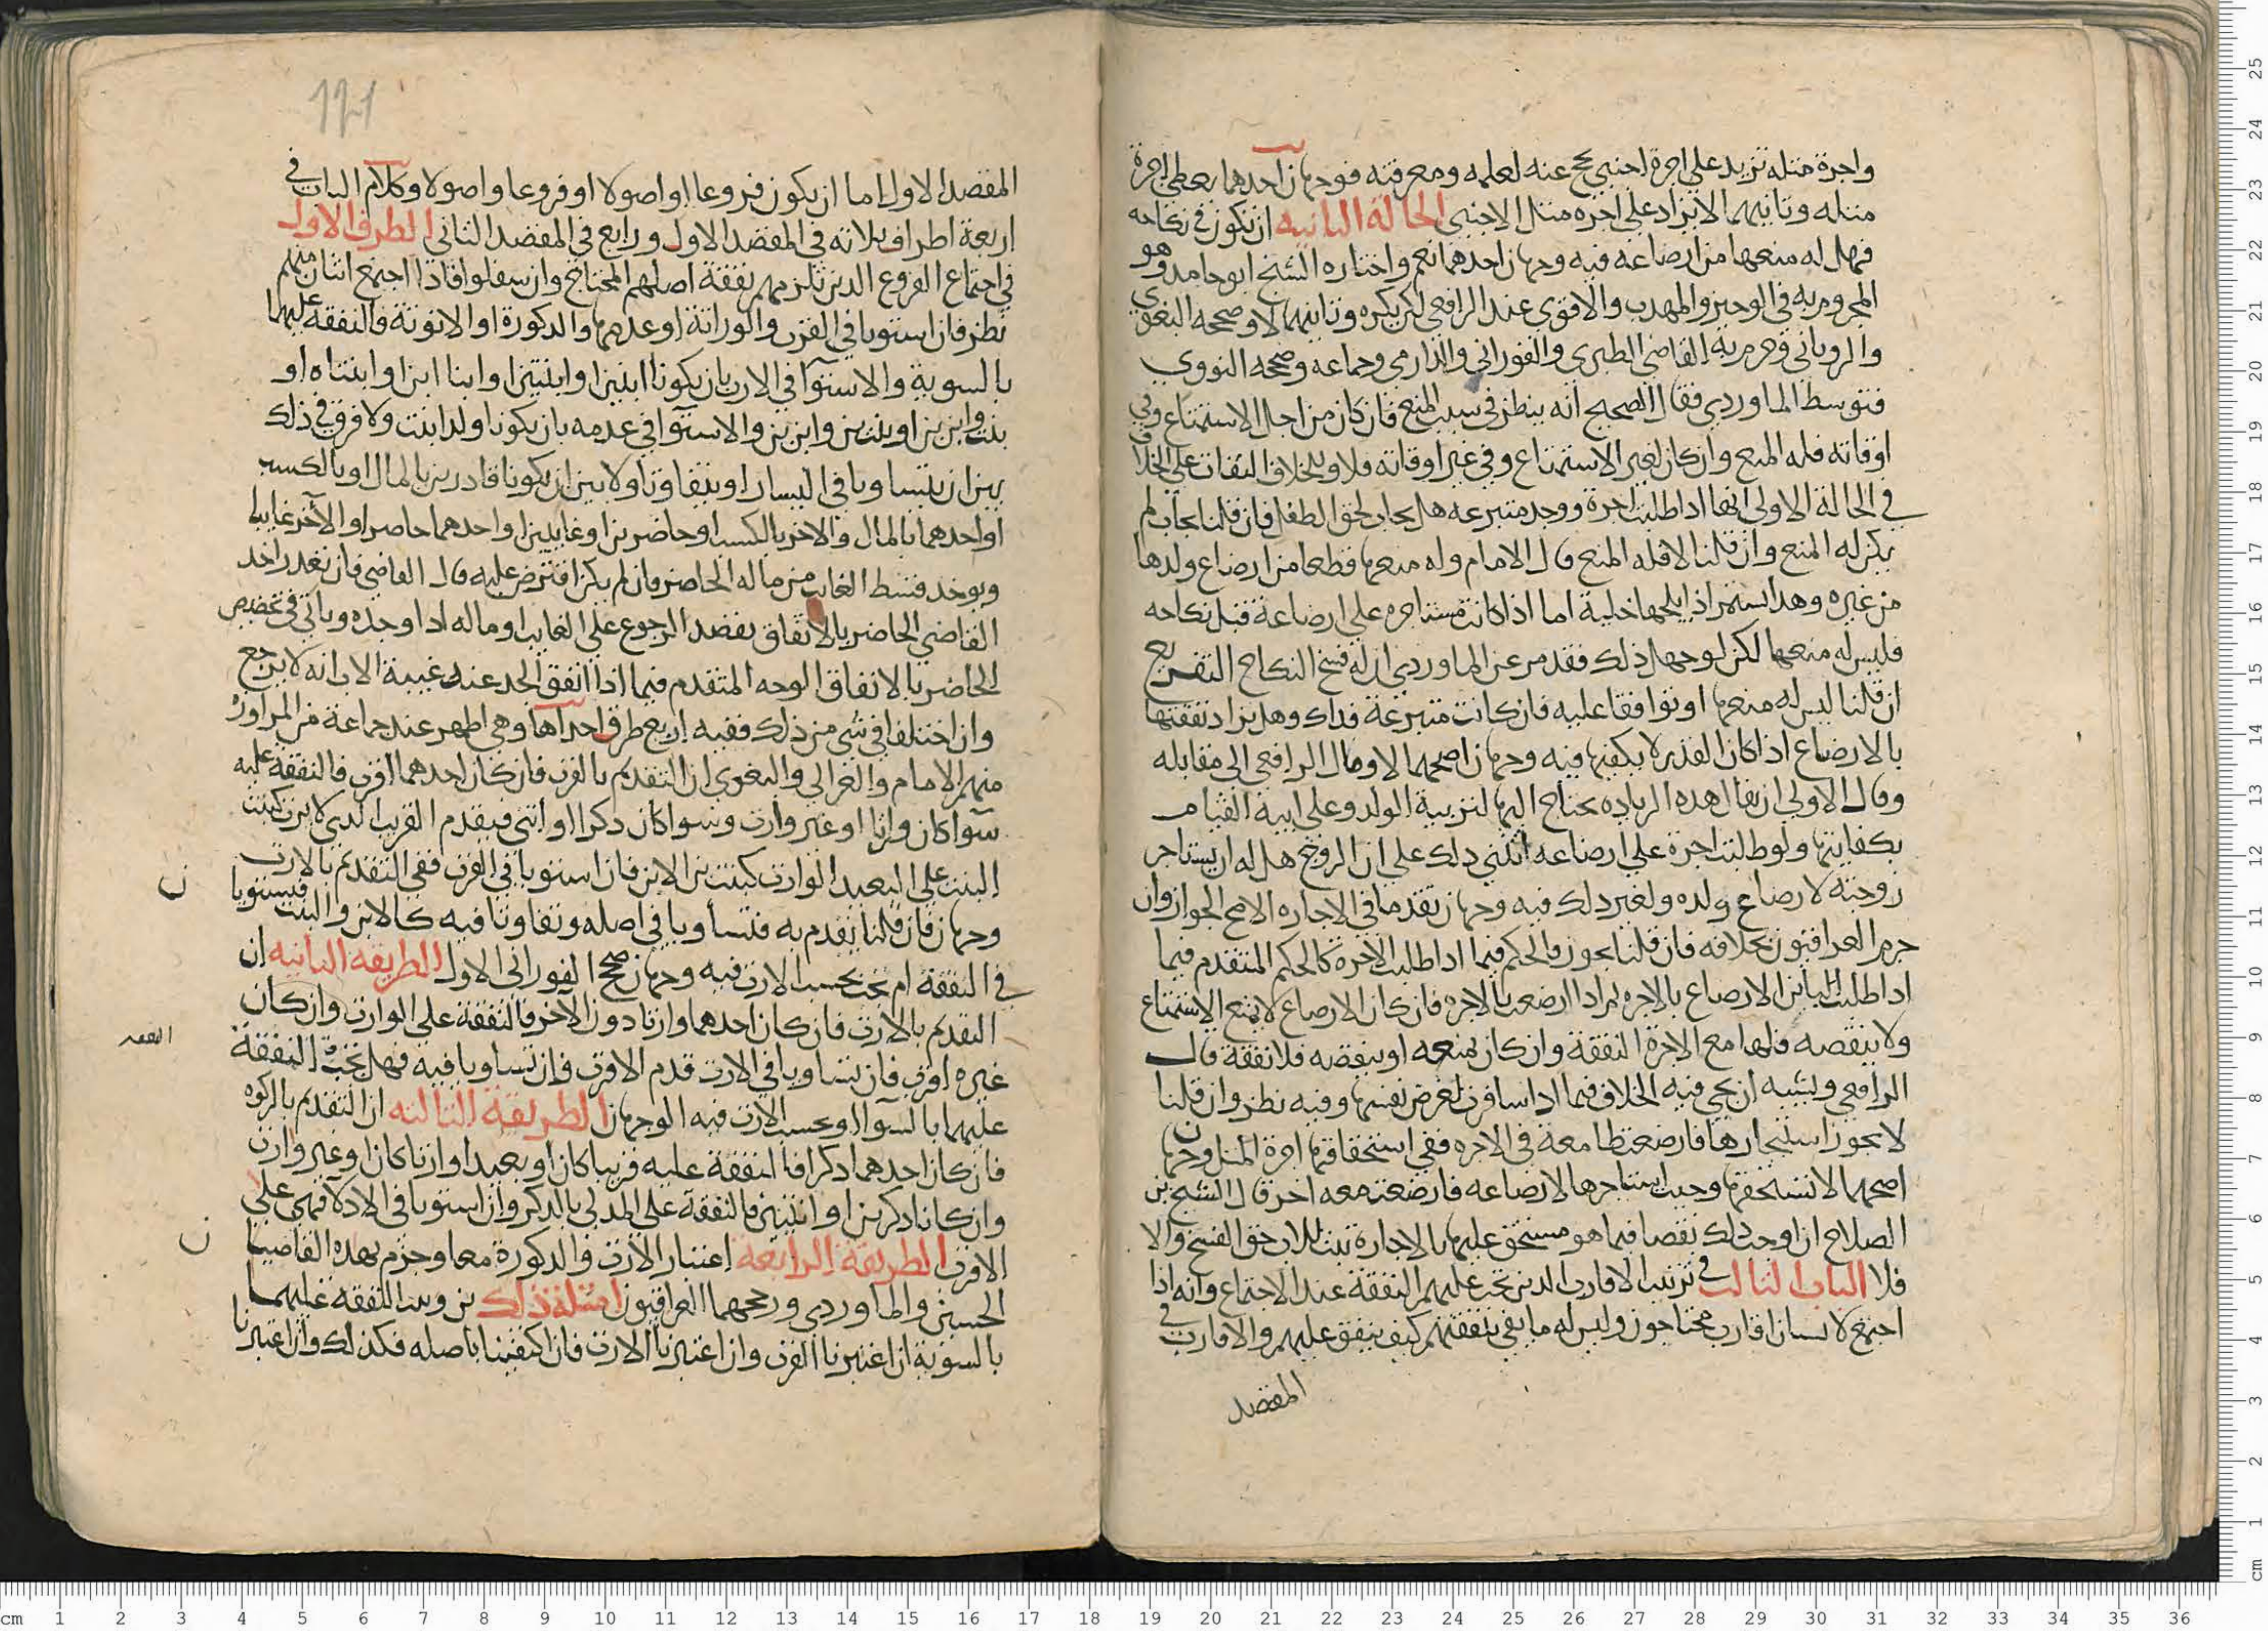 واجرة مثله تزيد على اجرة اجنبي يحج عنه لعلمه ومعرفته فوجهان احدهما يعطى اجرة
مثله وثانيهما لا يزاد على اجرة مثل الاجنبي الحالة الثانيه ان تكون في نكاحه
فهل له منعها من ارضاعه فيه وجهان احدهما نعم واختاره الشيخ ابو حامد وهو
المجزوم به في الوجيز والمهذب والاقوى عند الرافعي لكن يكره وثانيهما لا وصححه البغوي
والروياني وجزم به القاضي الطبري والفوراني والدارمي وجماعه وصححه النووي
فتوسط الماوردي فقال الصحيح انه ينظر في سبب المنع فان كان من اجل الاستمتاع وفي
اوقاته فله المنع وان كان لغير الاستمتاع وفي غير اوقاته فلا وللخلاف التفات على الخلاف
في الحالة الاولى انها اذا طلبت اجرة ووجد متبرعه هل يجاب لحق الطفل فان قلنا يجاب لم
يكن له المنع وان قلنا لا فله المنع قال الامام وله منعها قطعا من ارضاع ولدها
من غيره وهذا استمر اذا نكحها خلية اما اذا كانت مستاجره على ارضاعة قبل نكاحه
فليس له منعها لكن لو جهل ذلك فقد مر عن الماوردي ان له فسخ النكاح التفريع
ان قلنا ليس له منعها او توافقا عليه فان كانت متبرعة فذاك وهل يزاد نفقتها
بالارضاع اذا كان القدر لا يكفيها فيه وجهان اصحهما لا ومال الرافعي الى مقابله
وقال الاولى ان يقال هذه الزياده يحتاج اليها لتربية الولد وعلى ابيه القيام
بكفايتها ولو طلبت اجرة على ارضاعه انبنى ذلك على ان الزوج هل له ان يستاجر
زوجته لارضاع ولده ولغير ذلك فيه وجهان تقدما في الاجاره الاصح الجواز وان
جزم العراقيون بخلافه فان قلنا يجوز فالحكم فيما اذا طلبت الاجرة كالحكم المتقدم فيما
اذا طلبت البائن الارضاع بالاجره ثم اذا ارضعت بالاجره فان كان الارضاع لا يمنع الاستمتاع
ولا ينقصه فلها مع الاجرة النفقة وان كان يمنعه او ينقصه فلا نفقة قال
الرافعي ويشبه ان يجي فيه الخلاف فيما اذا سافرت لغرض نفسها وفيه نظر وان قلنا
لا يجوز استيجارها فارضعت طامعة في الاجره ففي استحقاقها اجرة المثل وجهان
اصحهما لا تستحقها وحيث استاجرها لارضاعه فارضعت معه اخر قال الشيخ بن
الصلاح ان اوجب ذلك نقصا فيما هو مستحق عليها بالاجارة ثبت للاب حق الفسخ والا
فلا الباب الثالث في ترتيب الاقارب الذين تجب عليهم النفقة عند الاجتماع وانه اذا
اجتمع لانسان اقارب محتاجون وليس له ما يفي بنفقتهم كيف ينفق عليهم والاقارب في
المقصد
المقصد الاول اما ان يكون فروعا او اصولا او فروعا واصولا وكلام الباب في
اربعة اطراف ثلاثه في المقصد الاول ورابع في المقصد الثاني الطرف الاول
في اجتماع الفروع الذين تلزمهم نفقة اصلهم المحتاج وان سفلوا فاذا اجتمع اثنان منهم
نظر فان استويا في القرب والوراثة او عدمها والذكورة او الانوثة فالنفقة عليهما
بالسوية والاستوآ في الارث بان يكونا ابنين او ابنتين او ابنا ابن او ابنتاه او
بنت وابن بن او بنت بن وابن بن والاستوآ في عدمه بان يكونا ولدا بنت ولا فرق في ذلك
بين ان يتساويا في اليسار او يتفاوتا ولا بين ان يكونا قادرين بالمال او بالكسب
او احدهما بالمال والاخر بالكسب او حاضرين او غايبين او احدهما حاضرا والآخر غايبا
ويوخذ قسط الغايب من ماله الحاضر فان لم يكن اقترض عليه قال القاضي فان تعذر اخذ
القاضي الحاضر بالانفاق بقصد الرجوع على الغايب او ماله اذا وجده وياتي في تخصيص
الحاضر بالانفاق الوجه المتقدم فيما اذا انفق الجد عند غيبة الاب انه لا يرجع
وان اختلفا في شي من ذلك ففيه اربع طرق احداها وهي اظهر عند جماعة من المراوزة
منهم الامام والغزالي والبغوي ان التقديم بالقرب فان كان احدهما اقرب فالنفقة عليه
سوا كان وارثا او غير وارث وسوا كان ذكرا او انثى فيقدم القريب الذي لا يرث كبنت
البنت على البعيد الوارث كبنت بن الابن فان استويا في القرب ففي التقديم بالارث
وجهان فان قلنا نقدم به فتساويا في اصله وتفاوتا فيه كالابن والبنت فيستويا
في النفقة ام تجب بحسب الارث فيه وجهان صحح الفوراني الاول الطريقة الثانيه ان
التقديم بالارث فان كان احدهما وارثا دون الآخر فالنفقة على الوارث وان كان
غيره اقرب فان تساويا في الارث قدم الاقرب فان تساويا فيه فهل تجب النفقة
النفقه
عليهما بالسوآ او بحسب الارث فيه الوجهان الطريقة الثالثه ان التقديم بالذكوره
فان كان احدهما ذكرا فالنفقة عليه قريبا كان او بعيدا وارثا كان وغير وارث
وان كانا ذكرين او انثيين فالنفقة على المدلي بالذكر وان استويا في الادلا فهي على
الاقرب الطريقة الرابعة اعتبار الارث والذكورة معا وجزم بهذه القاضيان
الحسين والماوردي ورجحهما العراقيون امثلة ذلك بن وبنت النفقة عليهما
بالسوية ان اعتبرنا القرب وان اعتبرنا الارث فان اكتفينا باصله فكذلك وان اعتبرنا